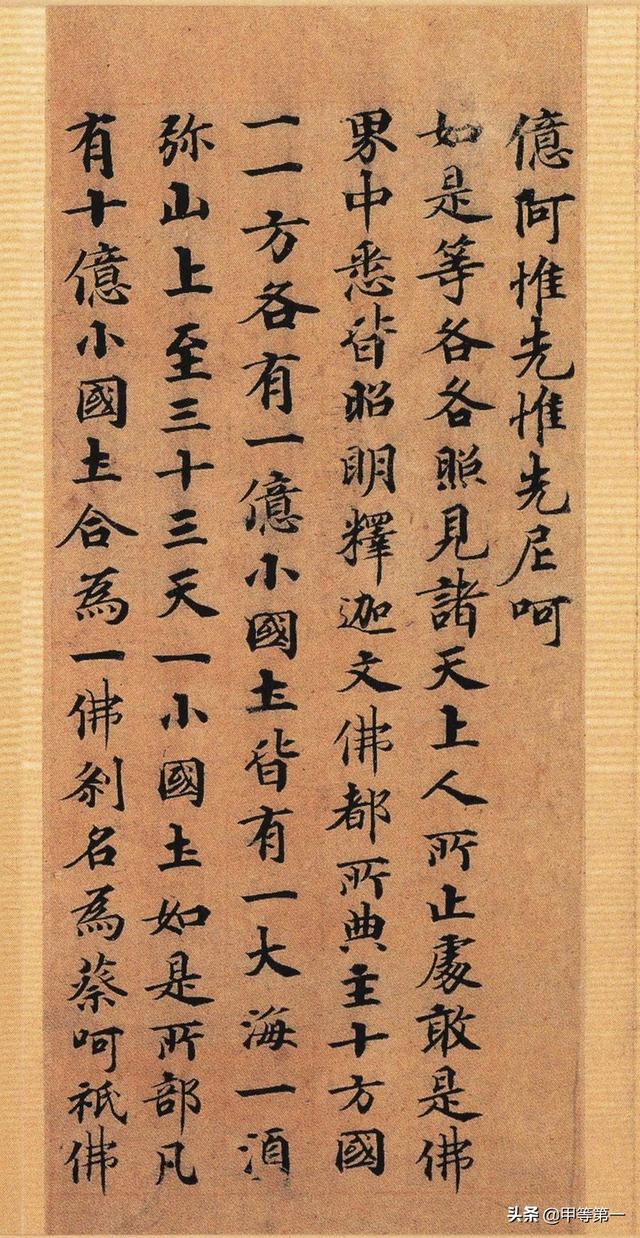 億阿惟先惟先尼呵
如是等各各照見諸天上人所止處敢是佛
界中悉皆昭明釋迦文佛都所典主十方國
一一方各有一億小國土皆有一大海一須
弥山上至三十三天一小國土如是所部凡
有十億小國土合為一佛剎名為蔡呵祇佛
头条 @甲等第一